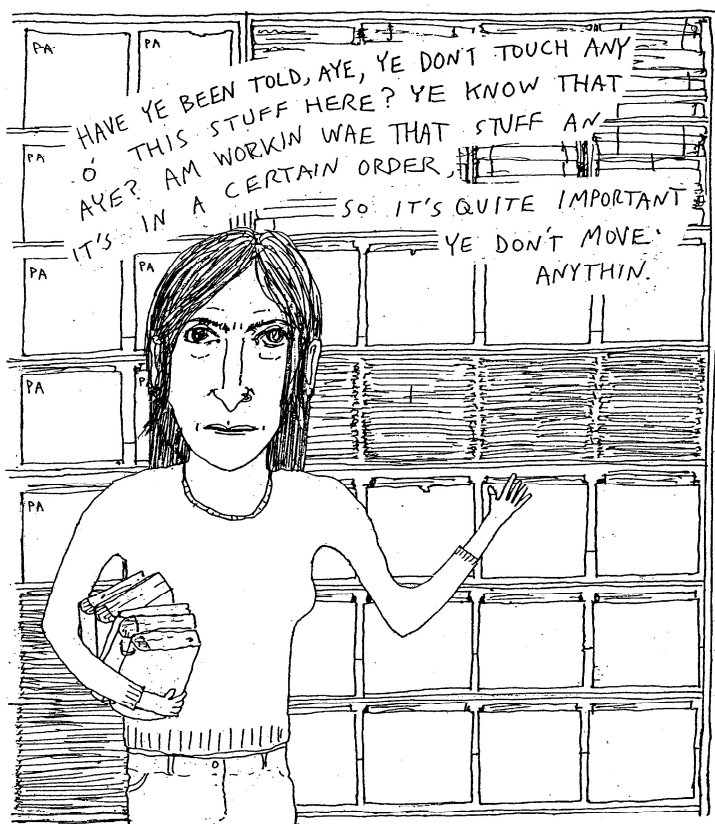 PA
PA
HAVE YE BEEN TOLD, AYE, YE DON'T TOUCH ANY
O' THIS STUFF HERE? YE KNOW THAT
AYE? AM WORKIN WAE THAT STUFF AN
IT'S IN A CERTAIN ORDER,
SO IT'S QUITE IMPORTANT
YE DON'T MOVE
ANYTHIN.
PA
PA
PA
PA
P
PA